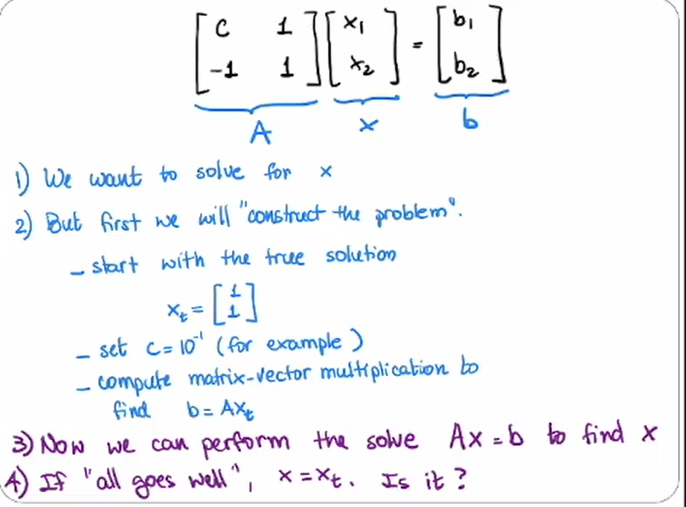 [c 1; -1 1] [x₁; x₂] = [b₁; b₂]
A x b
1) We want to solve for x
2) But first we will "construct the problem".
- start with the true solution
xₜ = [1; 1]
- set c = 10⁻¹ (for example)
- compute matrix-vector multiplication to
find b = Axₜ
3) Now we can perform the solve Ax = b to find x
4) If "all goes well", x = xₜ. Is it?